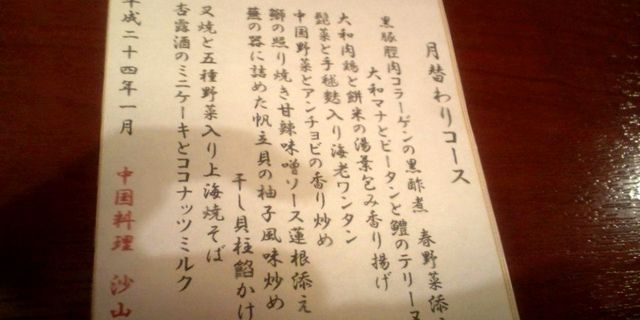 月替わりコース
黒豚脛肉コラーゲンの黒酢煮 春野菜添え
大和マナとピータンと鱧のテリーヌ
大和肉鶏と餅米の湯葉包み香り揚げ
髭菜と手毬麩入り海老ワンタン
中国野菜とアンチョビの香り炒め
鰤の照り焼き甘辣味噌ソース蓮根添え
蕪の器に詰めた帆立貝の柚子風味炒め
干し貝柱餡かけ
叉焼と五種野菜入り上海焼そば
杏露酒のミニケーキとココナッツミルク
平成二十四年一月 中国料理 沙山